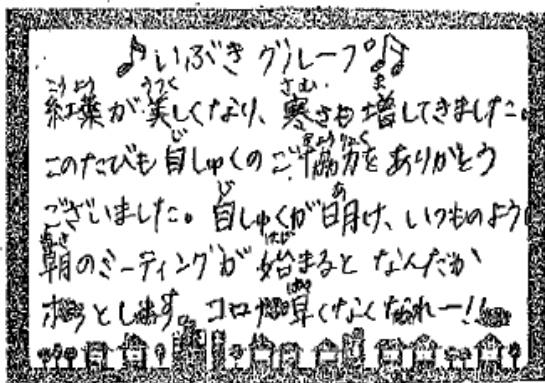 ♪いぶきグループ♫
紅葉が美しくなり、寒さも増してきました。
このたびも自しゅくのご協力をありがとう
ございました。自しゅくが明け、いつものように
朝のミーティングが始まると なんだか
ホッとします。コロナ早くなくなれー!!